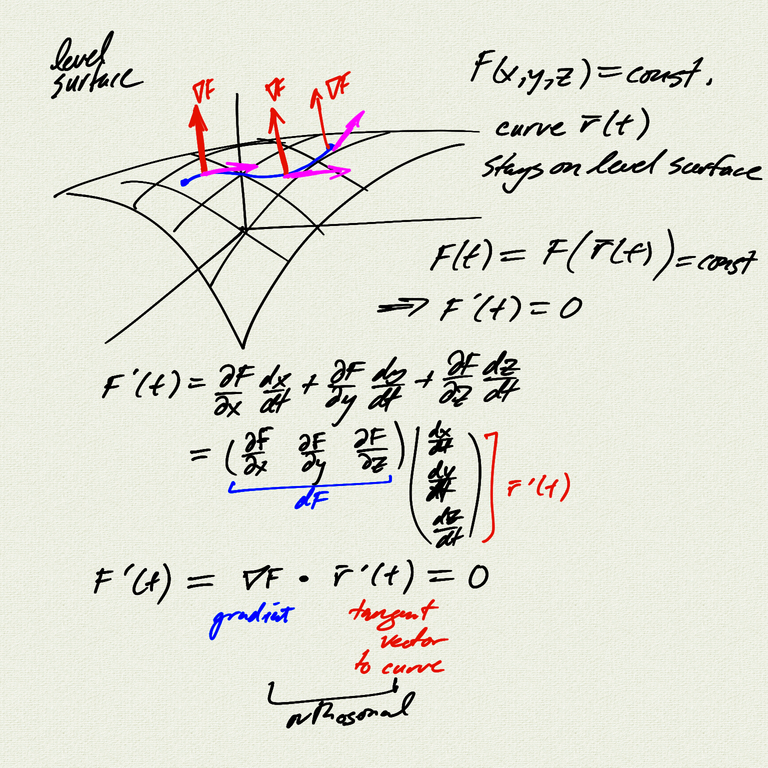 level
surface
∇F ∇F ∇F
F(x,y,z) = const.
curve r̄(t)
stays on level surface
F(t) = F(r̄(t)) = const
⟹ F'(t) = 0
F'(t) = ∂F/∂x dx/dt + ∂F/∂y dy/dt + ∂F/∂z dz/dt
= (∂F/∂x ∂F/∂y ∂F/∂z) (dx/dt dy/dt dz/dt) r̄'(t)
dF
F'(t) = ∇F • r̄'(t) = 0
gradient tangent
vector
to curve
orthogonal